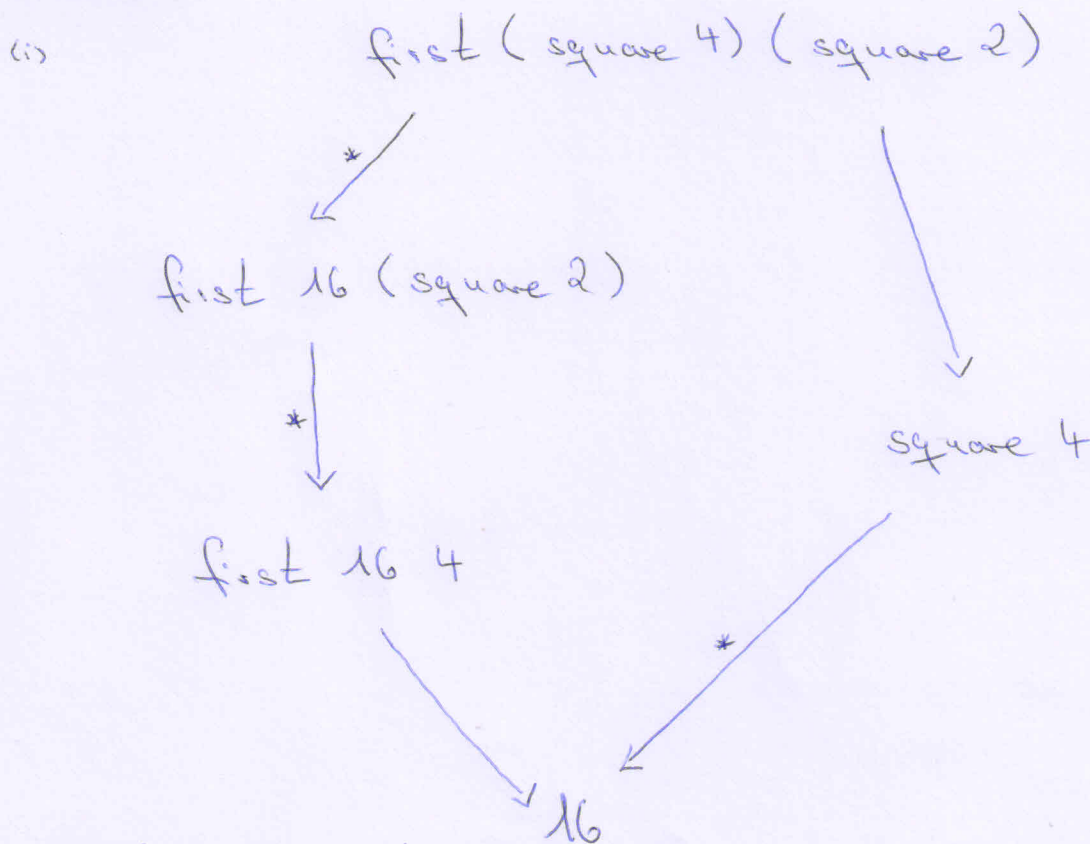 (i) first (square 4) (square 2)
*
first 16 (square 2)
*
square 4
first 16 4
*
16